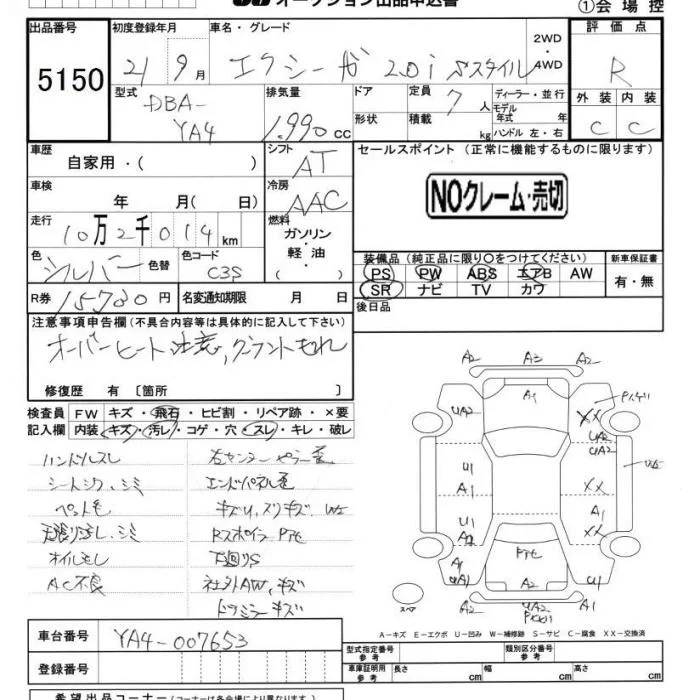 オークション出品申込書
①会場控
出品番号 5150
初度登録年月 21 9月
車名・グレード エクシーガ 2.0i Sスタイル
2WD・4WD
評価点 R
外装 内装
C C
型式 DBA-YA4
排気量 1,990cc
ドア 形状
定員 7人
積載 kg
ディーラー・並行
モデル年式 年
ハンドル 左・右
車歴 自家用・( )
シフト AT
セールスポイント (正常に機能するものに限ります)
NOクレーム・売切
車検 年 月( 日)
冷房 AAC
走行 10万2千014km
燃料 ガソリン・軽油・( )
色 シルバー 色替
色コード C3S
装備品 (純正品に限り〇をつけてください)
PS PW ABS エアB AW
SR ナビ TV カワ
新車保証書 有・無
R券 15780円
名変通知期限 月 日
後日品
注意事項申告欄(不具合内容等は具体的に記入して下さい)
オーバーヒート注意,クーラントもれ
修復歴 有〔箇所 〕
検査員記入欄
FW キズ・飛石・ヒビ割・リペア跡・×要
内装 キズ・汚レ・コゲ・穴・スレ・キレ・破レ
ハンドルスレ
シートシワ、シミ
ペット毛
天張り汚し、シミ
オイルモレ
AC不良
エンドパネル歪
RスポイラーPハゲ
下廻りS
社外AW、キズ
ドアミラーキズ
A2 A3 A2
A1
UA2
XX
UA2
UA2
U1
A1
XX
A1
U1
A1
XX
A1
A1
A2
U1
A1
UA2
A1
スペア
A-キズ E-エクボ U-凹み W-補修跡 S-サビ C-腐食 XX-交換済
車台番号 YA4-007653
登録番号
型式指定番号 参考
類別区分番号 参考
車庫証明用参考 長さ cm 幅 cm 高さ cm
希望出品コーナー(コーナーは各会場により異なります)